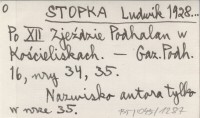 o STOPKA Ludwik 1928...
Po XII Zjeździe Podhalan w
Kościeliskach. — Gaz. Podh.
16, nry 34, 35.
Nazwisko autora tylko
w nrze 35.